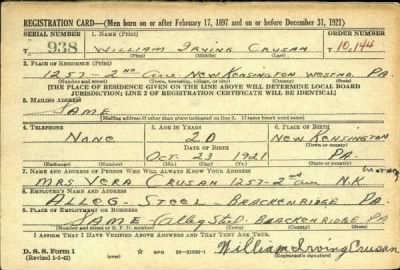 REGISTRATION CARD—(Men born on or after February 17, 1897 and on or before December 31, 1921)
SERIAL NUMBER 1. NAME (Print) ORDER NUMBER
938 WILLIAM IRVING CRUSAN 10,144
(First) (Middle) (Last)
2. PLACE OF RESIDENCE (Print)
1257-2ND AVE. NEW KENSINGTON WESTMD. PA.
(Number and street) (Town, township, village, or city) (County) (State)
[THE PLACE OF RESIDENCE GIVEN ON THE LINE ABOVE WILL DETERMINE LOCAL BOARD
JURISDICTION; LINE 2 OF REGISTRATION CERTIFICATE WILL BE IDENTICAL]
3. MAILING ADDRESS
SAME
[Mailing address if other than place indicated on line 2. If same insert word same]
4. TELEPHONE 5. AGE IN YEARS 6. PLACE OF BIRTH
NONE 20 NEW KENSINGTON
DATE OF BIRTH (Town or county)
OCT. 23 1921 PA.
(Exchange) (Number) (Mo.) (Day) (Yr.) (State or country)
7. NAME AND ADDRESS OF PERSON WHO WILL ALWAYS KNOW YOUR ADDRESS
MRS VERA CRUSAN 1257-2nd ave N.K.
8. EMPLOYER'S NAME AND ADDRESS
ALLEG- STEEL- BRACKENRIDGE PA.
9. PLACE OF EMPLOYMENT OR BUSINESS
SAME Alleg Steel- BRACKENRIDGE PA.
(Number and street or R. F. D. number) (Town) (County) (State)
I AFFIRM THAT I HAVE VERIFIED ABOVE ANSWERS AND THAT THEY ARE TRUE.
D. S. S. Form 1 GPO 16—21630-1 William Irving Crusan
(Revised 1-1-42) (over) (Registrant's signature)